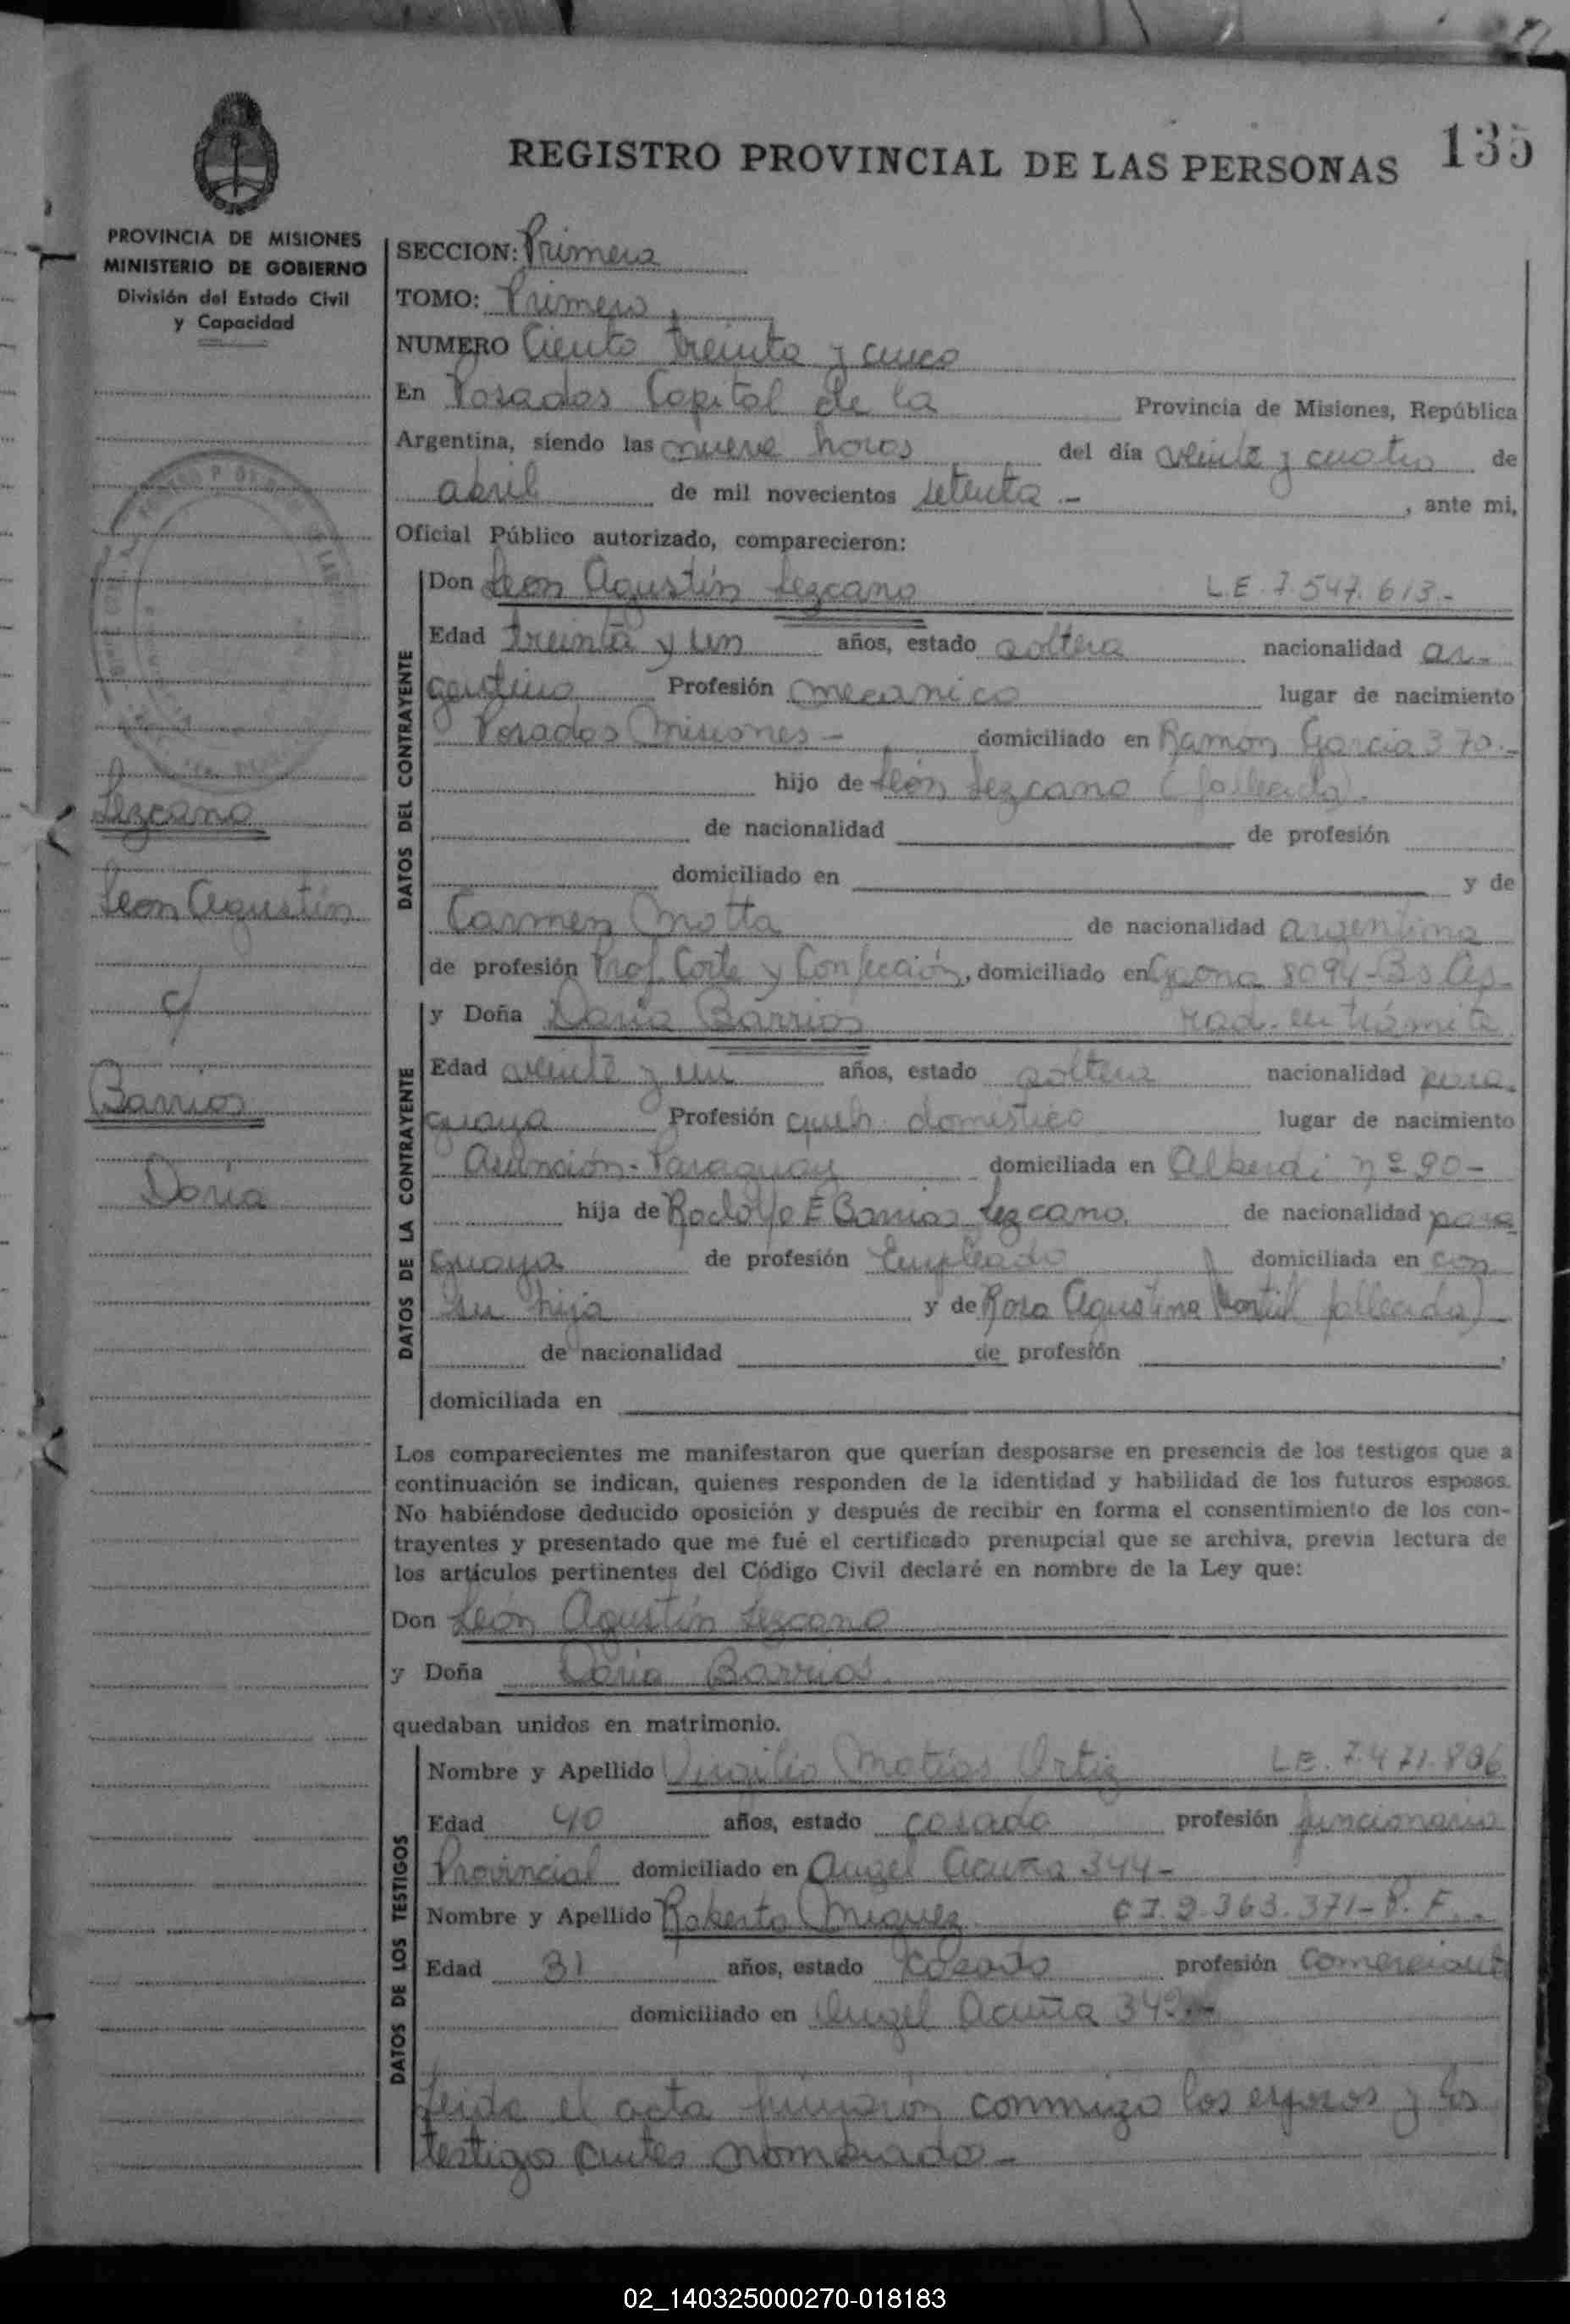 REGISTRO PROVINCIAL DE LAS PERSONAS 135
PROVINCIA DE MISIONES
MINISTERIO DE GOBIERNO
División del Estado Civil
y Capacidad
SECCION: Primera
TOMO: Primero
NUMERO Ciento treinta y cinco
En Posadas Capital de la Provincia de Misiones, República
Argentina, siendo las nueve horas del día veinte y cuatro de
abril de mil novecientos setenta - , ante mi,
Oficial Público autorizado, comparecieron:
DATOS DEL CONTRAYENTE
Don León Agustín Lezcano L.E. 7.547.613.-
Edad treinta y un años, estado soltero nacionalidad ar-
gentino Profesión mecanico lugar de nacimiento
Posadas Misiones - domiciliado en Ramón Garcia 370.-
hijo de León Lezcano (fallecido).
de nacionalidad de profesión
domiciliado en y de
Carmen Motta de nacionalidad argentina
de profesión Prof. Corte y Confección, domiciliado en Gaona 8094-Bs As.
Lezcano
Leon Agustín
c/
Barrios
Doria
DATOS DE LA CONTRAYENTE
y Doña Doria Barrios rad. en trámite
Edad veinte y un años, estado soltera nacionalidad para
guaya Profesión queh. domestico lugar de nacimiento
Asunción - Paraguay domiciliada en Alberdi nº 90-
hija de Rodolfo E Barrios Lezcano de nacionalidad para
guaya de profesión Empleado domiciliada en con
su hija y de Rosa Agustina fallecida)
de nacionalidad de profesión
domiciliada en
Los comparecientes me manifestaron que querían desposarse en presencia de los testigos que a
continuación se indican, quienes responden de la identidad y habilidad de los futuros esposos.
No habiéndose deducido oposición y después de recibir en forma el consentimiento de los con-
trayentes y presentado que me fué el certificado prenupcial que se archiva, previa lectura de
los artículos pertinentes del Código Civil declaré en nombre de la Ley que:
Don León Agustín Lezcano
y Doña Doria Barrios
quedaban unidos en matrimonio.
DATOS DE LOS TESTIGOS
Nombre y Apellido Virgilio Matías Ortiz L.E. 7.471.806
Edad 40 años, estado casado profesión funcionario
Provincial domiciliado en Angel Acuña 344-
Nombre y Apellido Roberto Miguez C I. 2.363.371-P. F.-
Edad 31 años, estado casado profesión Comerciante
domiciliado en Angel Acuña
Leida el acta firmaron conmigo los esposos y los
testigo antes nombrado-
02_140325000270-018183